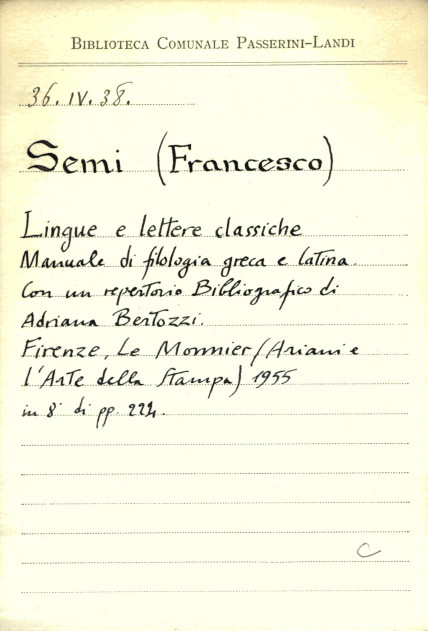 BIBLIOTECA COMUNALE PASSERINI-LANDI
36. IV. 38.
Semi (Francesco)
Lingue e lettere classiche
Manuale di filologia greca e latina.
Con un repertorio Bibliografico di
Adriana Bertozzi.
Firenze, Le Monnier (Ariani e
l'Arte della Stampa) 1955
in 8° di pp. 224.
C